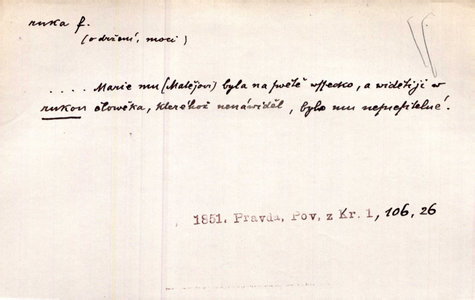 ruka f.
(o držení, moci)
.... Marie mu (Matějovi) byla na světě wssecko, a widěti ji w
rukou člowěka, kteréhož nenáwiděl, bylo mu nesnesitelné.
1851. Pravda, Pov. z Kr. 1, 106, 26